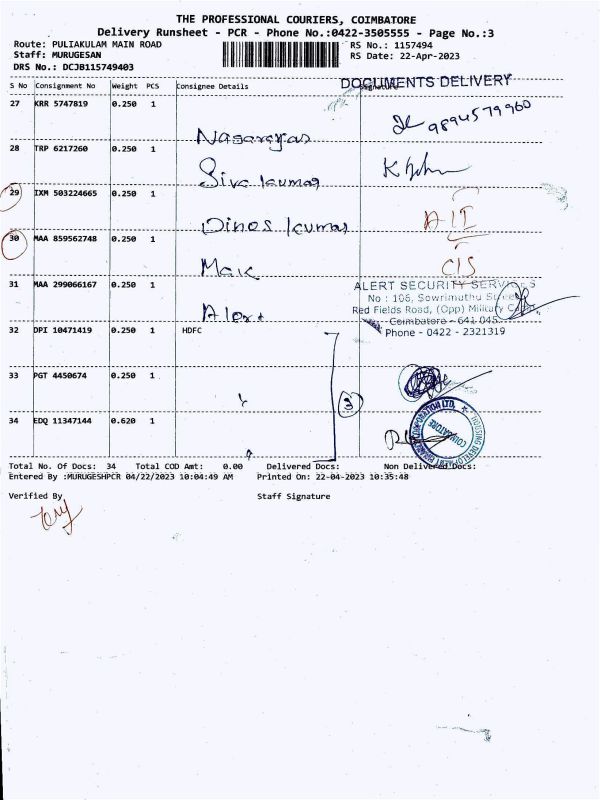 THE PROFESSIONAL COURIERS, COIMBATORE
Delivery Runsheet - PCR - Phone No.:0422-3505555 - Page No.:3
Route: PULIAKULAM MAIN ROAD RS No.: 1157494
Staff: MURUGESAN RS Date: 22-Apr-2023
DRS No.: DCJB115749403
DOCUMENTS DELIVERY
S No Consignment No Weight PCS Consignee Details Signature
27 KRR 5747819 0.250 1
9894579960
Nagarajan
28 TRP 6217260 0.250 1
Siva kumar
29 IXM 503224665 0.250 1
Dines kumar
AIT
30 MAA 859562748 0.250 1
Mak
CIS
31 MAA 299066167 0.250 1
Alert
ALERT SECURITY SERVICES
No : 106, Sowrimuthu Street
Red Fields Road, (Opp) Military
Coimbatore - 641 045
Phone - 0422 - 2321319
32 DPI 10471419 0.250 1 HDFC
33 PGT 4450674 0.250 1
3
34 EDQ 11347144 0.620 1
HOUSING DEVELOPMENT
COIMBATORE
LTD.
Total No. Of Docs: 34 Total COD Amt: 0.00 Delivered Docs: Non Delivered Docs:
Entered By :MURUGESHPCR 04/22/2023 10:04:49 AM Printed On: 22-04-2023 10:35:48
Verified By Staff Signature